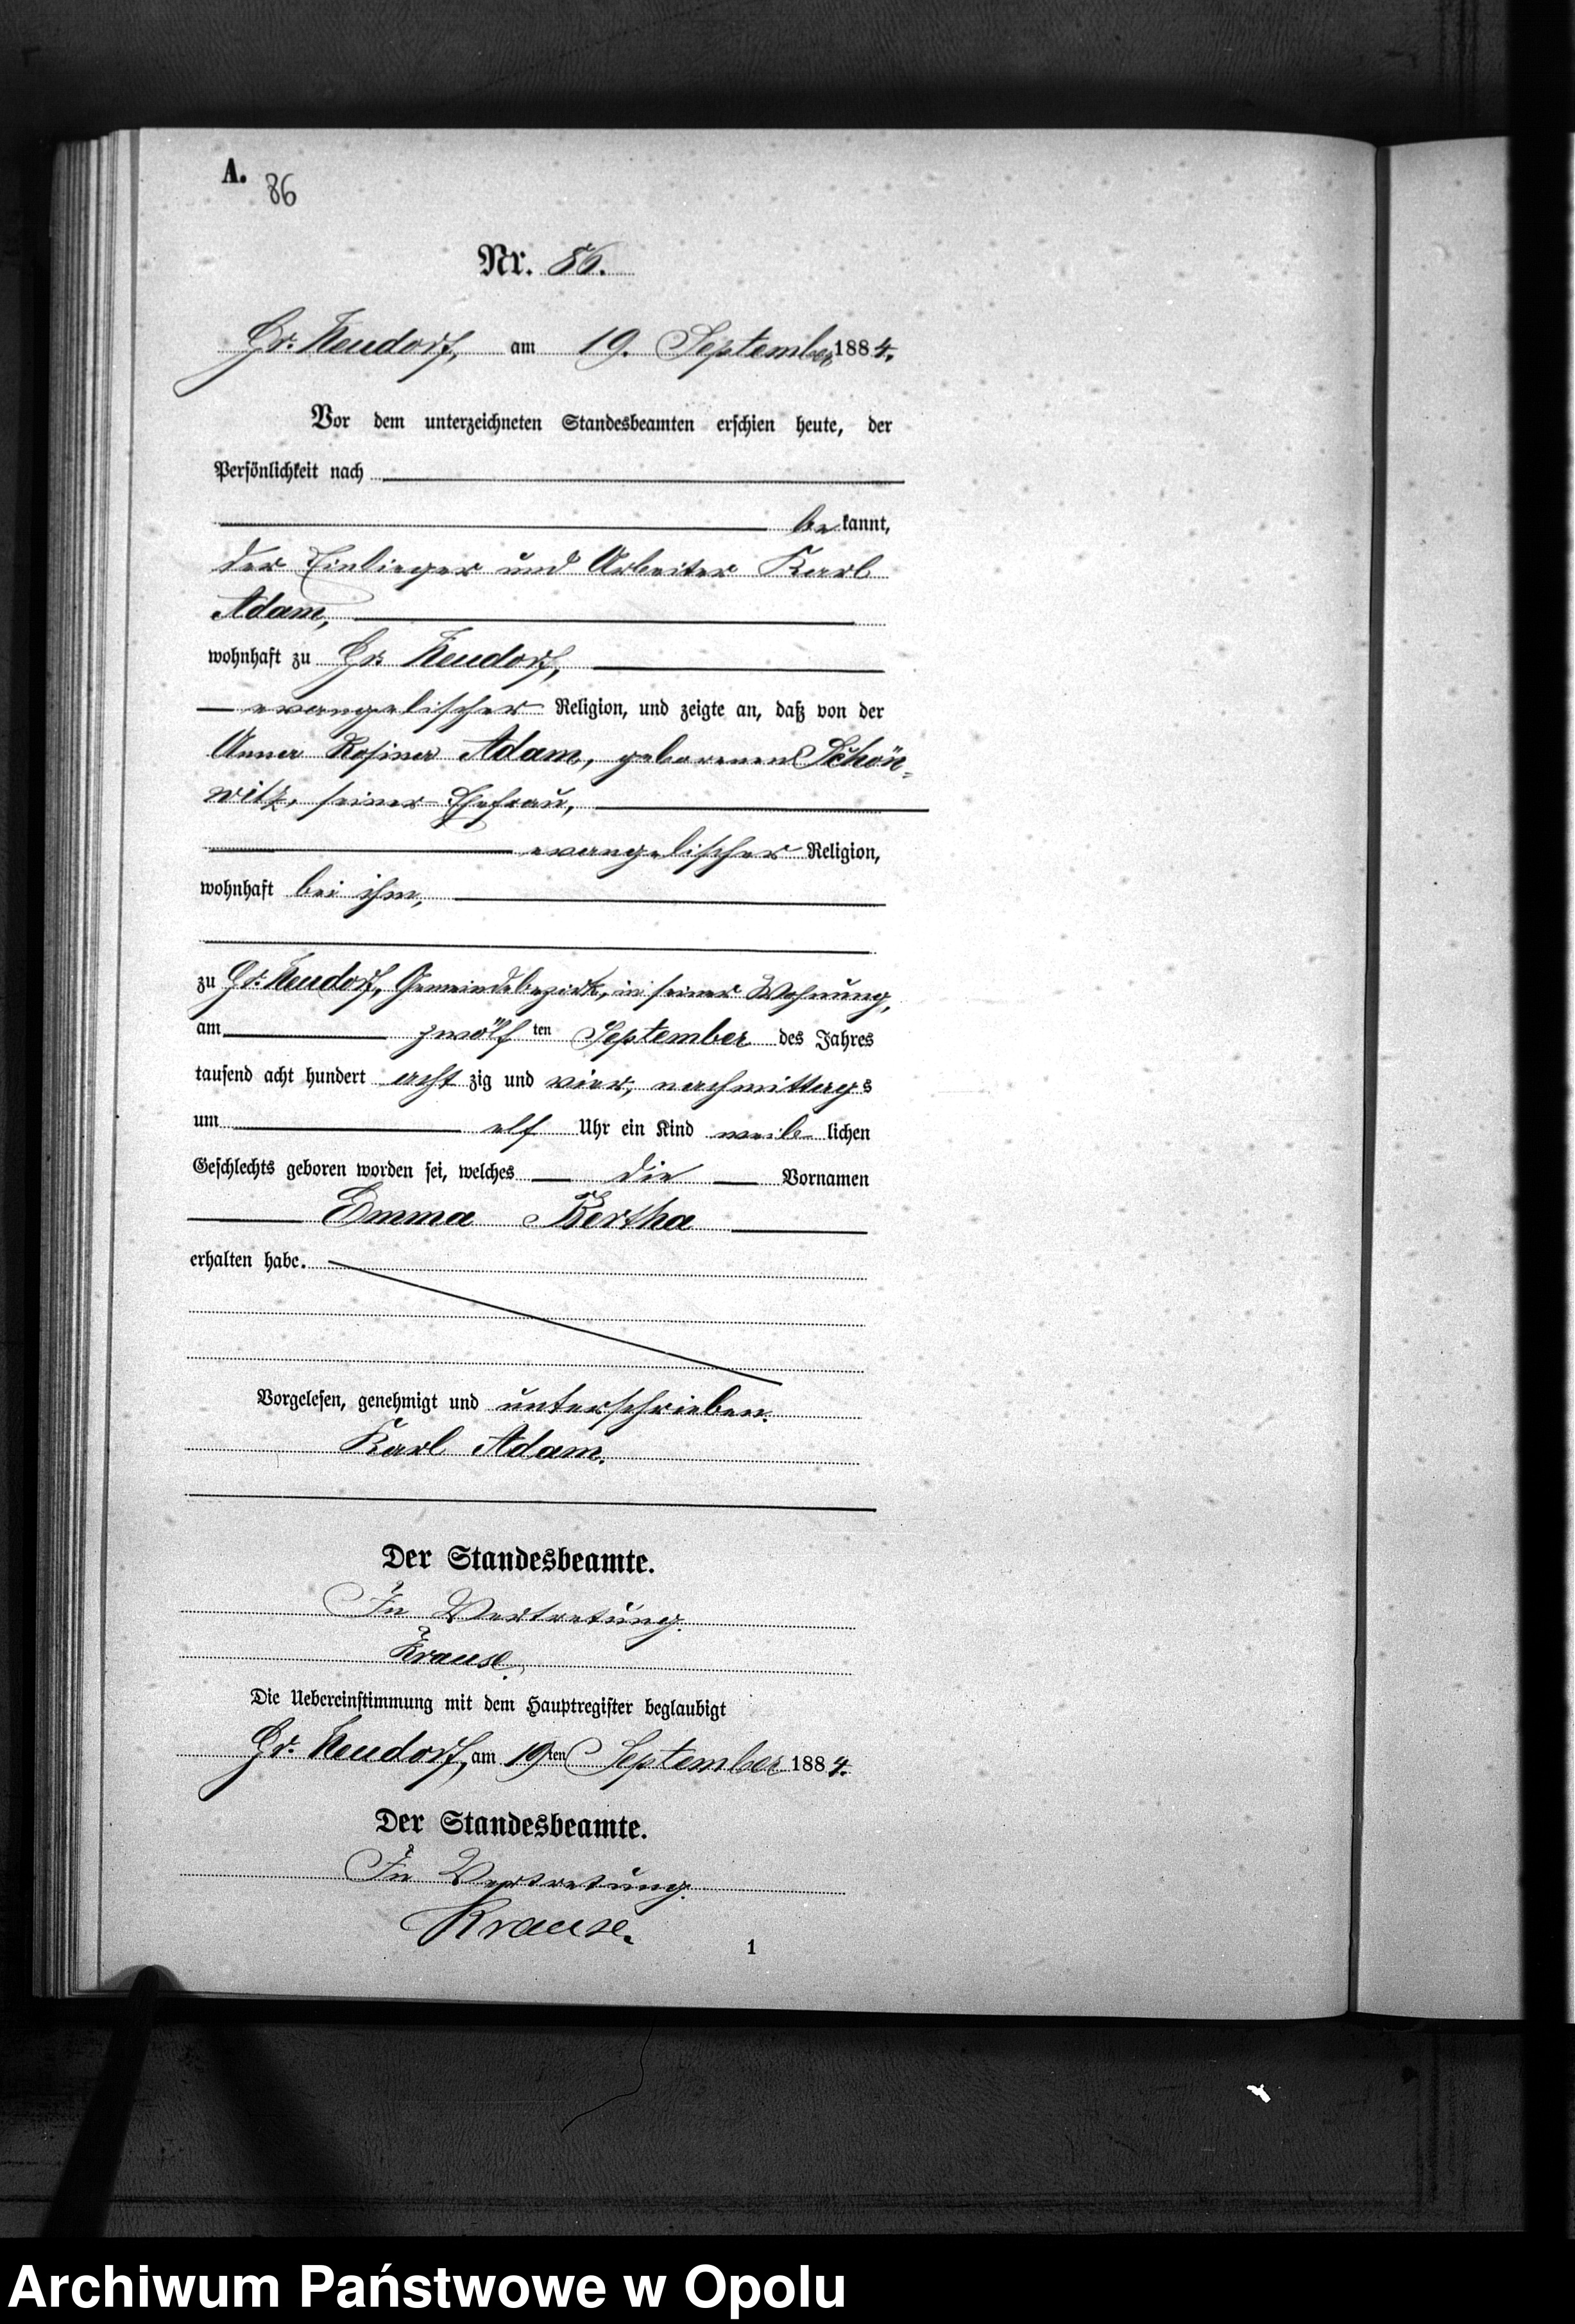 A.
86
Nr. 86.
Gr. Neudorf, am 19. September 1884.
Vor dem unterzeichneten Standesbeamten erschien heute, der
Persönlichkeit nach
bekannt,
der Einlieger und Arbeiter Karl
Adam,
wohnhaft zu Gr. Neudorf,
evangelischer Religion, und zeigte an, daß von der
Anna Rosina Adam, geborenen Schön-
witz, seiner Ehefrau,
evangelischer Religion,
wohnhaft bei ihm,
zu Gr. Neudorf, Gemeindebezirk, in seiner Wohnung,
am zwölf ten September des Jahres
tausend acht hundert acht zig und vier, nachmittags
um elf Uhr ein Kind weib lichen
Geschlechts geboren worden sei, welches die Vornamen
Emma Bertha
erhalten habe.
Vorgelesen, genehmigt und unterschrieben.
Karl Adam.
Der Standesbeamte.
In Vertretung.
Krause.
Die Uebereinstimmung mit dem Hauptregister beglaubigt
Gr. Neudorf, am 19ten September 1884.
Der Standesbeamte.
In Vertretung.
Krause.
1
Archiwum Państwowe w Opolu